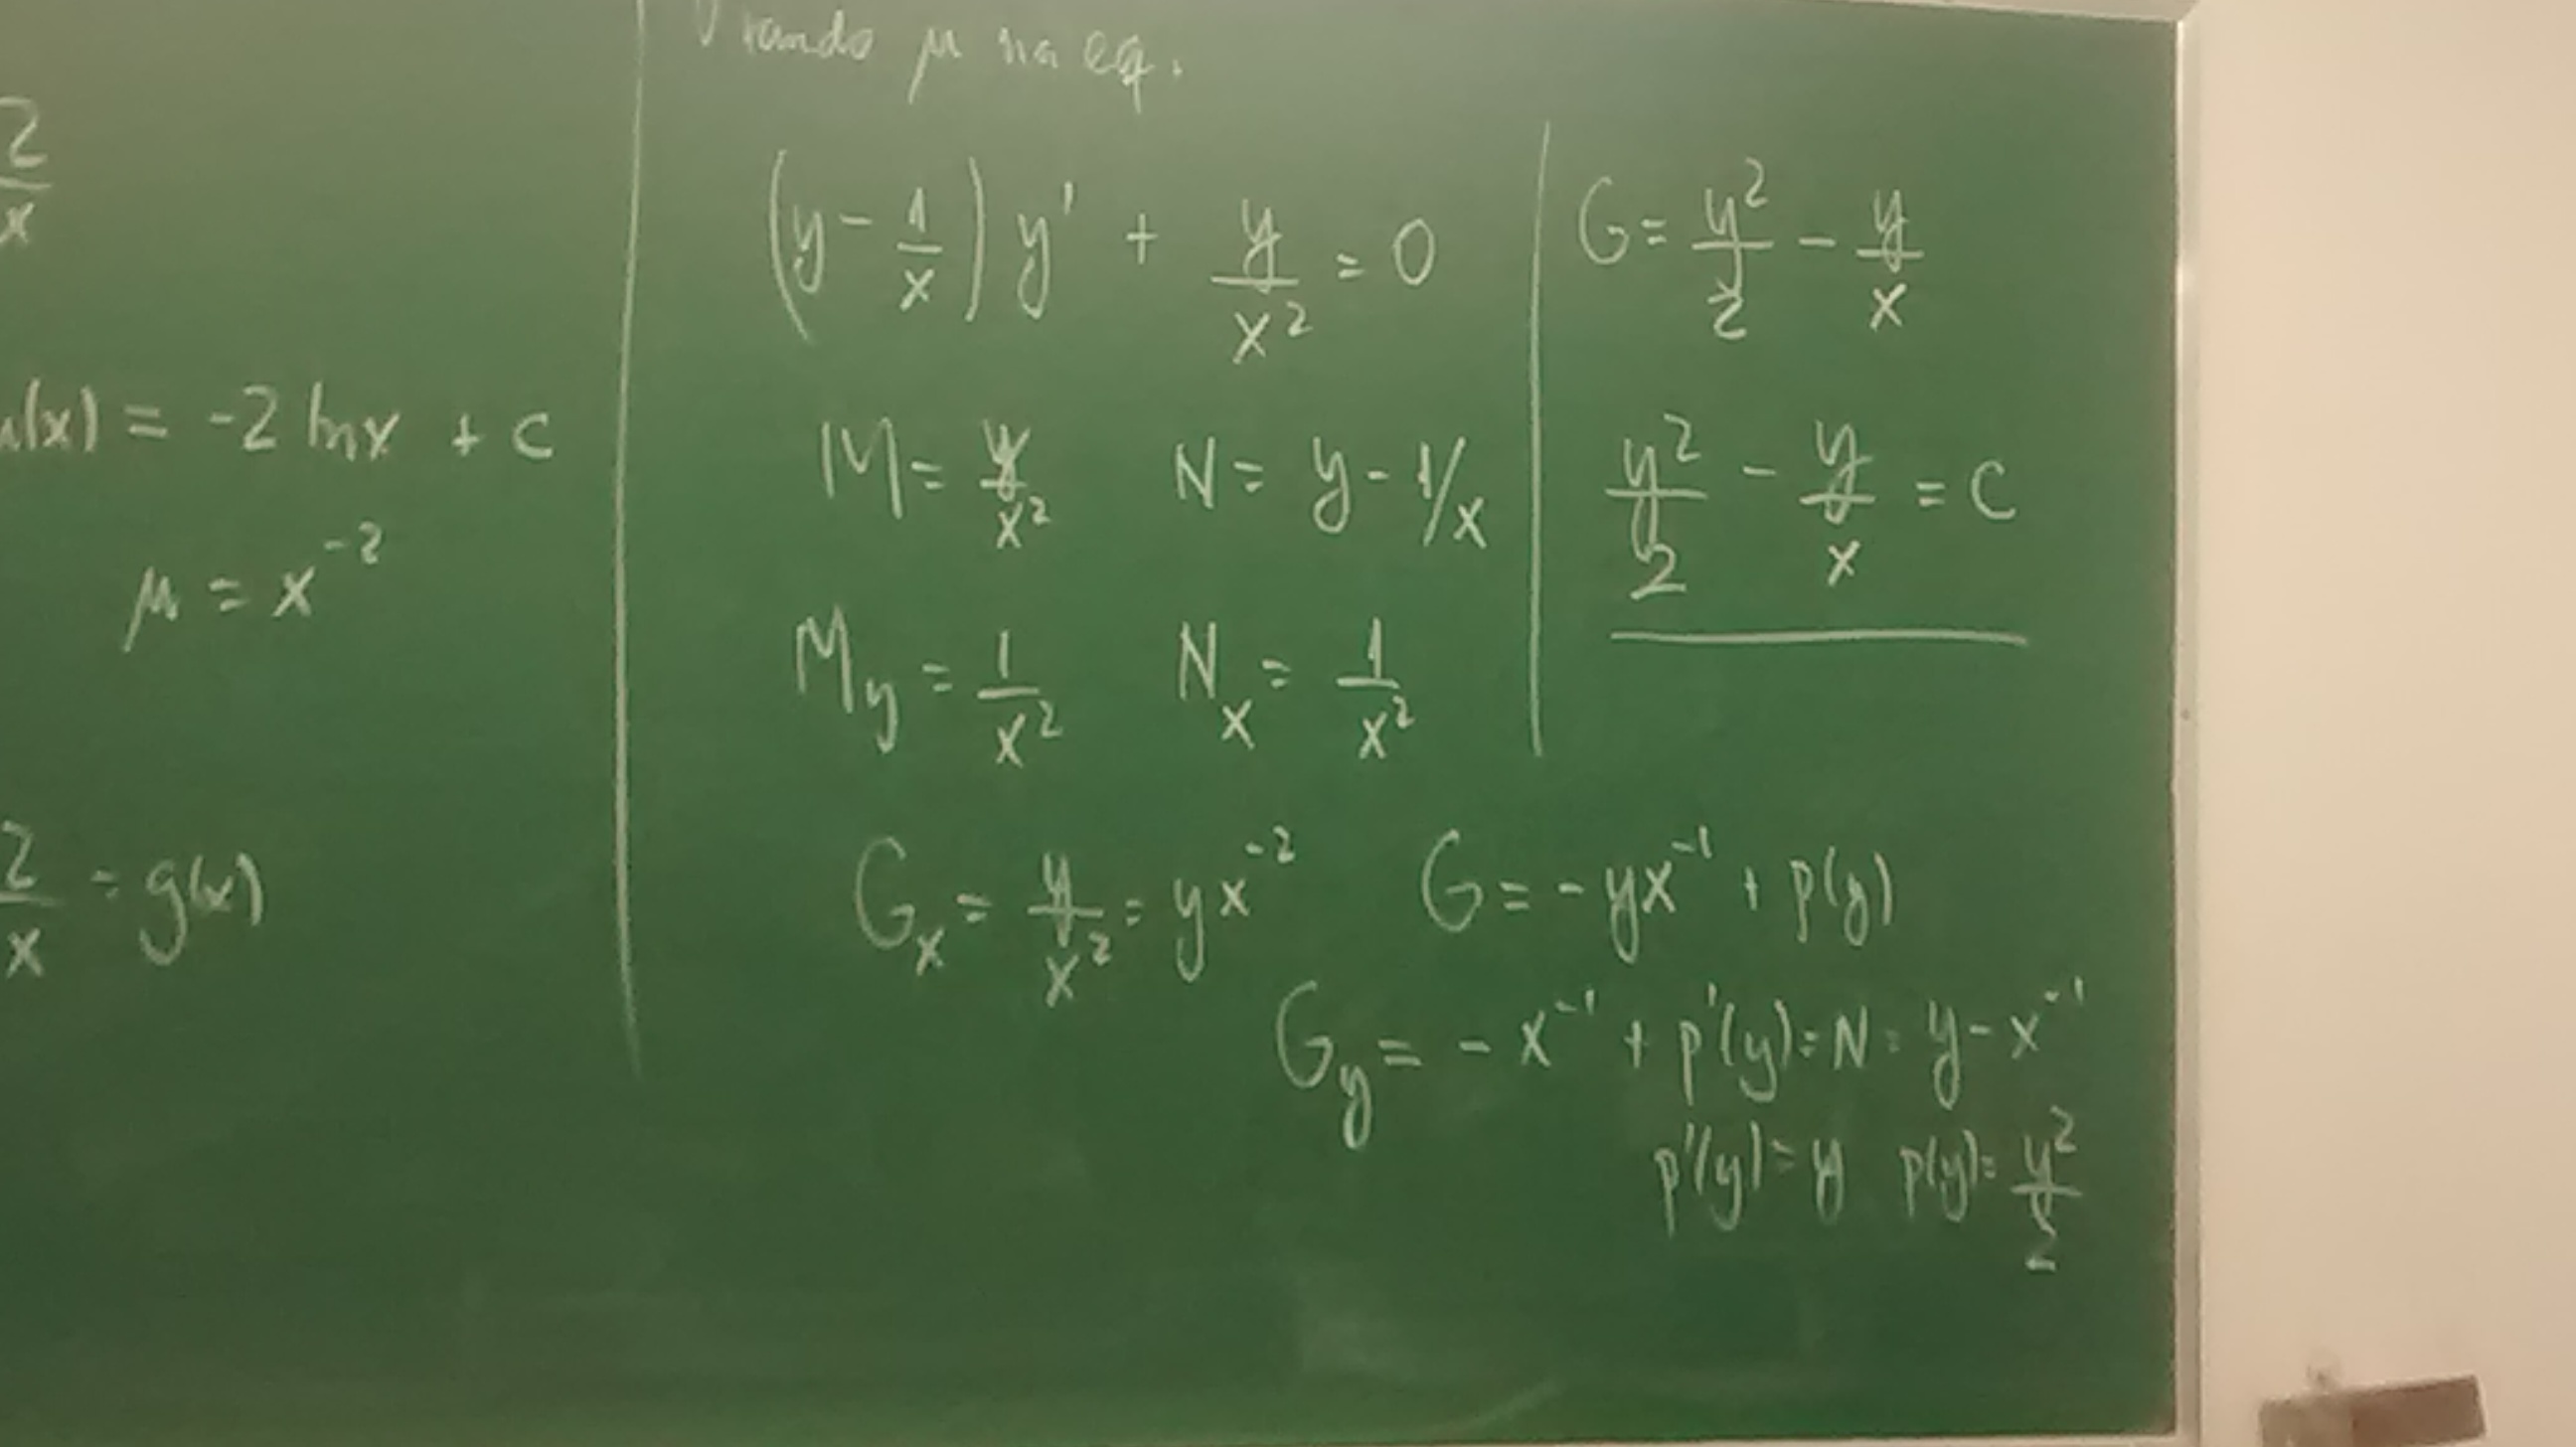 2/x
μ(x) = -2 ln x + c
μ = x^-2
2/x = g(x)
Usando μ na eq.
(y - 1/x) y' + y/x^2 = 0
M = y/x^2   N = y - 1/x
M_y = 1/x^2   N_x = 1/x^2
G_x = y/x^2 = yx^-2   G = -yx^-1 + p(y)
G_y = -x^-1 + p'(y) = N = y - x^-1
p'(y) = y   p(y) = y^2/2
G = y^2/2 - y/x
y^2/2 - y/x = C